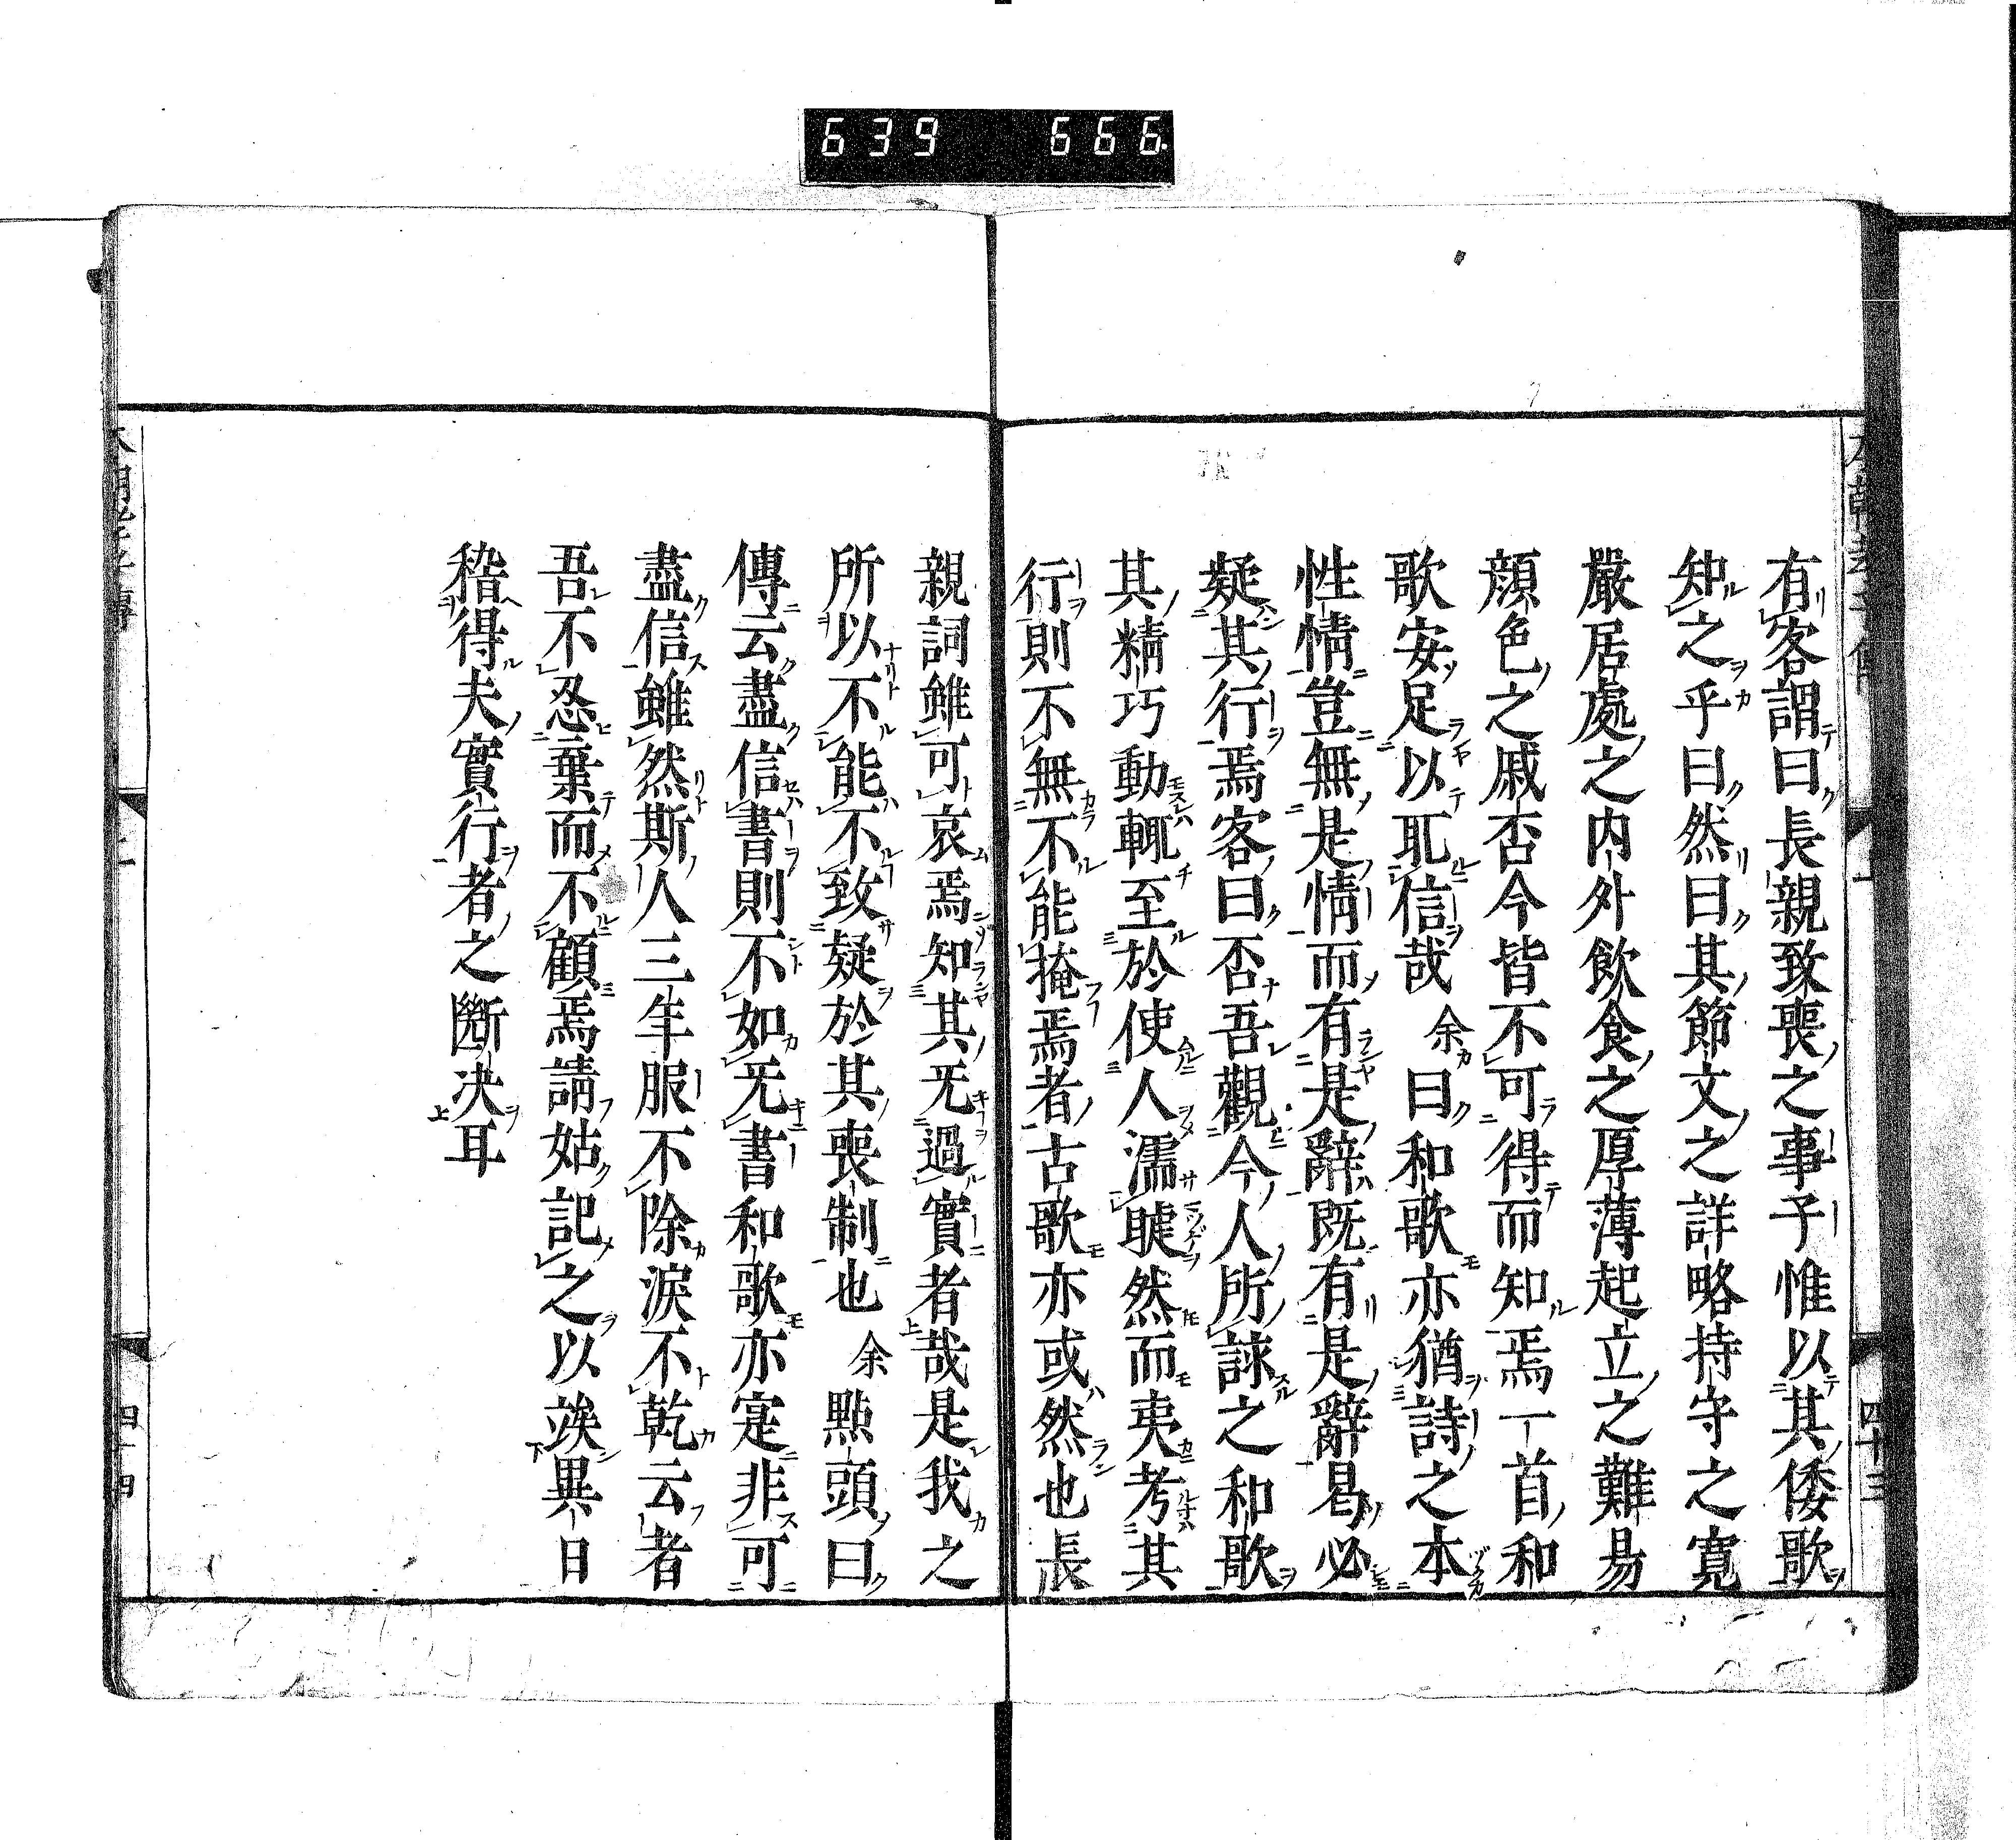 639 666.
有客謂曰長親致喪之事子惟以其倭歌
知之乎曰然曰其節文之詳略持守之寛
嚴居處之内外飲食之厚薄起立之難易
顔色之戚否今皆不可得而知焉一首和
歌安足以取信哉余曰和歌亦猶詩之本
性情豈無是情而有是辭既有是辭曷必
疑其行焉客曰否吾觀今人所詠之和歌
其精巧動輒至於使人濡睫然而夷考其
行則不無不能掩焉者古歌亦或然也長
親詞雖可哀焉知其无過實者哉是我之
所以不能不致疑於其喪制也余點頭曰
傳云盡信書則不如无書和歌亦寔非可
盡信雖然斯人三年服不除涙不乾云者
吾不忍棄而不顧焉請姑記之以竢異日
稽得夫實行者之斷決耳
四十三
四十四